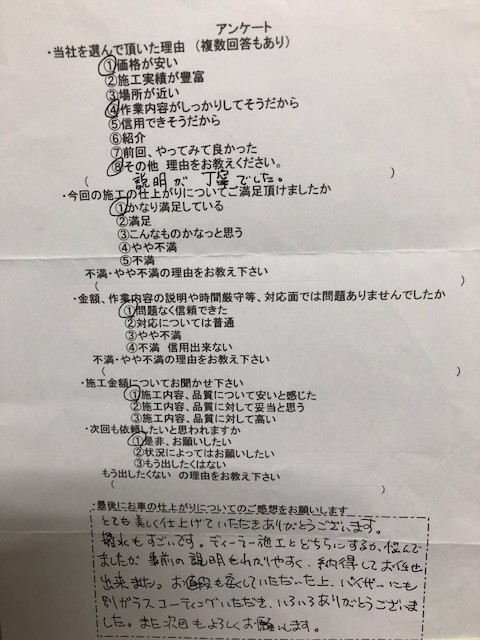 アンケート
・当社を選んで頂いた理由　(複数回答もあり)
①価格が安い
②施工実績が豊富
③場所が近い
④作業内容がしっかりしてそうだから
⑤信用できそうだから
⑥紹介
⑦前回、やってみて良かった
⑧その他 理由をお教えください。
(　説明が 丁寧でした。　)
・今回の施工の仕上がりについてご満足頂けましたか
①かなり満足している
②満足
③こんなものかなっと思う
④やや不満
⑤不満
不満・やや不満の理由をお教え下さい
(　)
・金額、作業内容の説明や時間厳守等、対応面では問題ありませんでしたか
①問題なく信頼できた
②対応については普通
③やや不満
④不満 信用出来ない
不満・やや不満の理由をお教え下さい
(　)
・施工金額についてお聞かせ下さい
①施工内容、品質について安いと感じた
②施工内容、品質に対して妥当と思う
③施工内容、品質に対して高い
・次回も依頼したいと思われますか
①是非、お願いしたい
②状況によってはお願いしたい
③もう出したくはない
もう出したくない の理由をお教え下さい
(　)
・最後にお車の仕上がりについてのご感想をお願いします
とても美しく仕上げていただきありがとうございます。
撥水もすごいです。ディーラー施工とどちらにするか、悩んで
ましたが 事前の説明もわかりやすく、納得してお任せ
出来ました。お値段も安くしていただいた上、バイザーにも
別ガラスコーティングいただき、いろいろありがとうございま
した。また次回もよろしくお願いします。